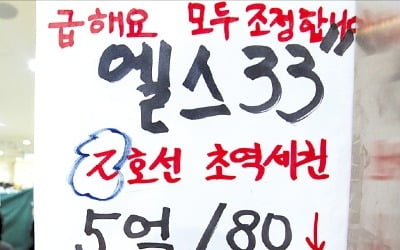 급해요 모두 조정합니
엘스 33"
2호선 초역세권
5억 /80↓